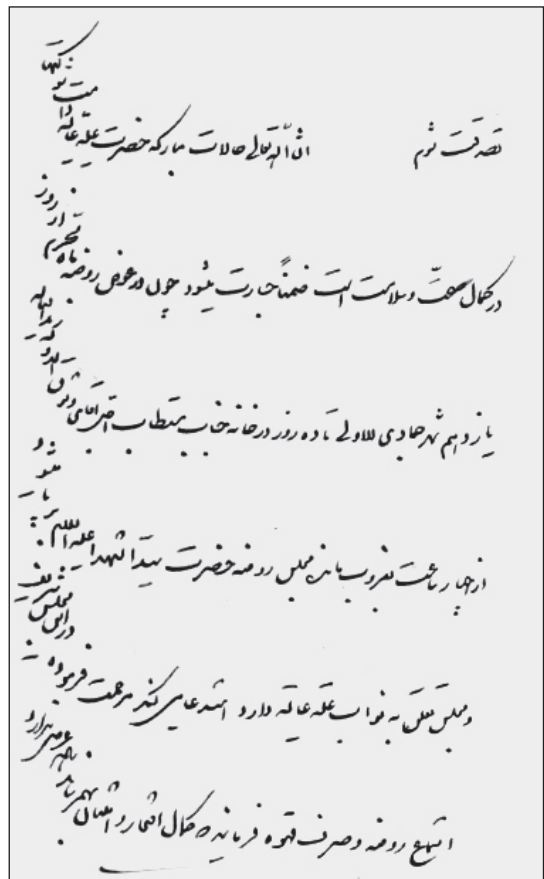 تصدقت شوم انشاءالله تعالی حالات مبارکه حضرت علیه عالیه دامت شوکتها
در کمال صحت و سلامت است ضمناً جسارت میشود چون در عوض روضه ماه محرم از روز
یازدهم شهر جمادی الاولی تا ده روز در خانه جناب مستطاب اجل آقای
از چهار ساعت بغروب مانده مجلس روضه حضرت سیدالشهدا علیه السلام برپا میشود و
و مجلس متعلق به نواب علیه عالیه دارد استدعا می کند مرحمت فرموده در این مجلس شریف
استماع روضه و صرف قهوه فرمایند که کمال افتخار و امتنان بهم رساند عرضی ندارد